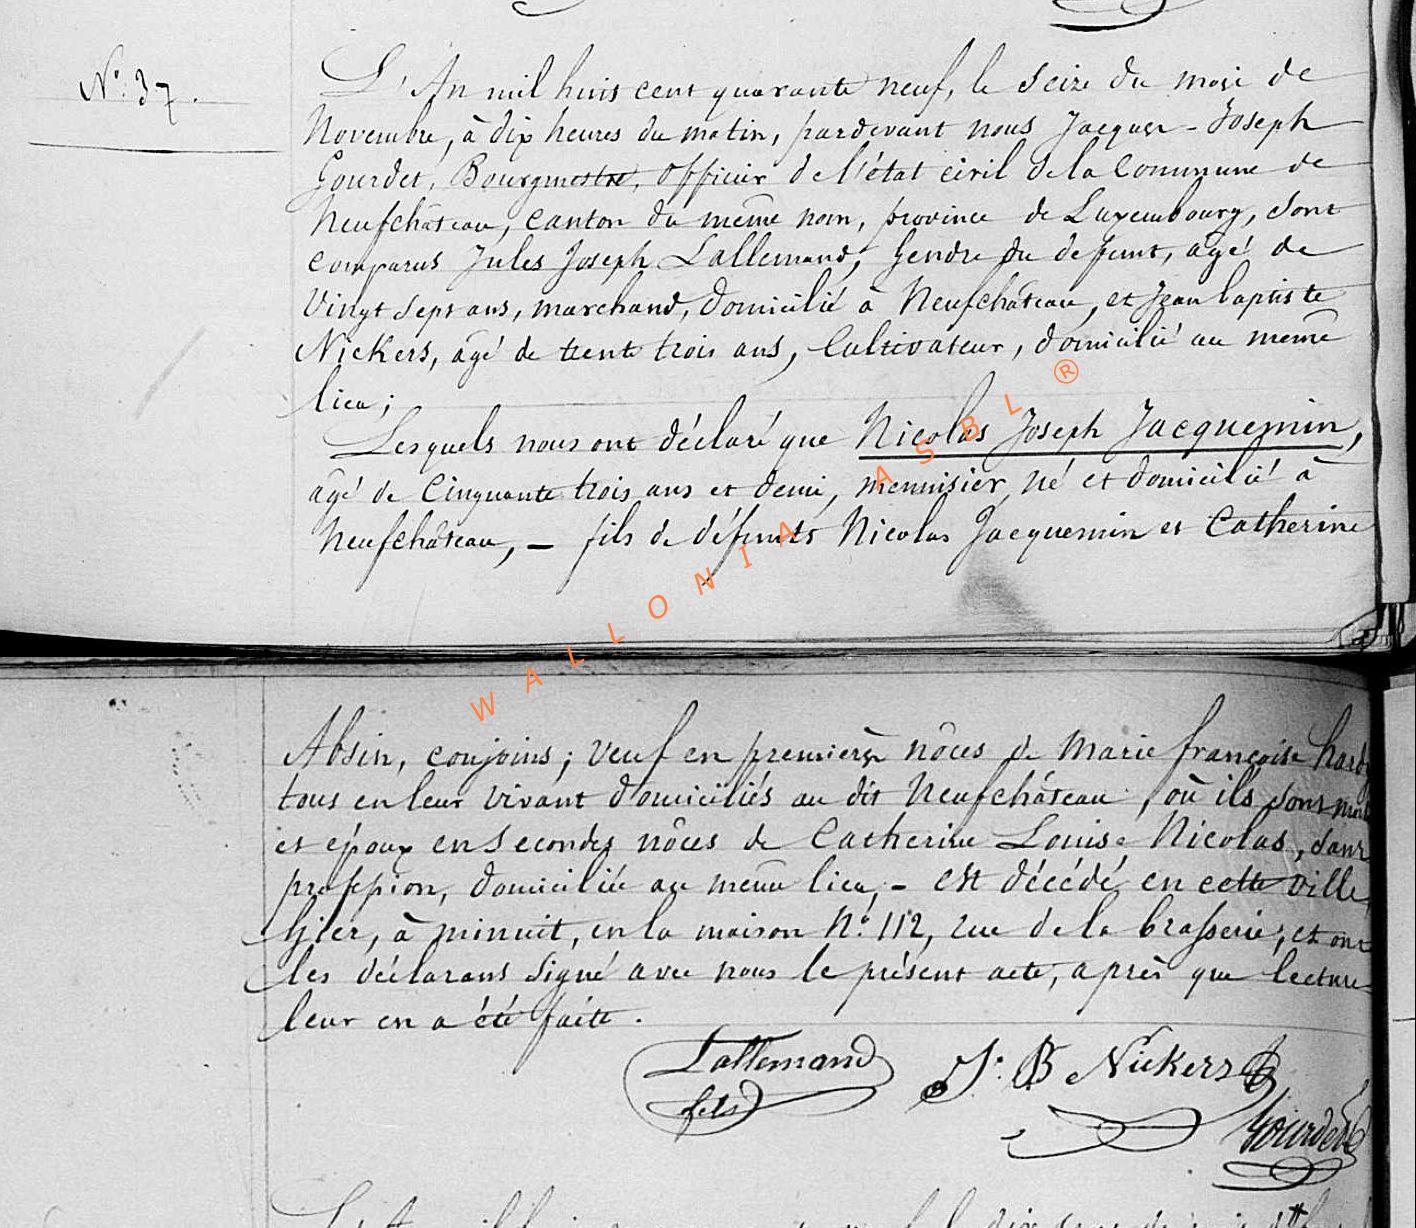 N.° 37.
L'An mil huit cent quarante neuf, le seize du mois de
Novembre, à dix heures du matin, pardevant nous Jacques-Joseph
Gourdet, Bourgmestre, officier de l'état civil de la Commune de
Neufchâteau, canton du même nom, province de Luxembourg, sont
comparus Jules Joseph Lallemand, Gendre du défunt, agé de
Vingt sept ans, marchand, domicilié à Neufchâteau, et Jean baptiste
Nickers, âgé de trente trois ans, Cultivateur, domicilié au même
lieu;
Lesquels nous ont déclaré que Nicolas Joseph Jacquemin,
âgé de Cinquante trois ans et demi, menuisier, né et domicilié à
Neufchâteau, – fils de défunts Nicolas Jacquemin et Catherine
WALLONIA ASBL ®
Absin, conjoins; veuf en premières nôces de Marie françoise hardy
tous en leur vivant domiciliés au dit Neufchâteau, où ils sont
et époux en secondes nôces de Catherine Louise Nicolas, sans
profession, domiciliée au même lieu, – est décédé en cette ville,
hier, à minuit, en la maison N.° 112, rue de la brasserie; et ont
les déclarans signé avec nous le présent acte, après que lecture
leur en a été faite.
Lallemand J. B Nickers
fils
Gourdet